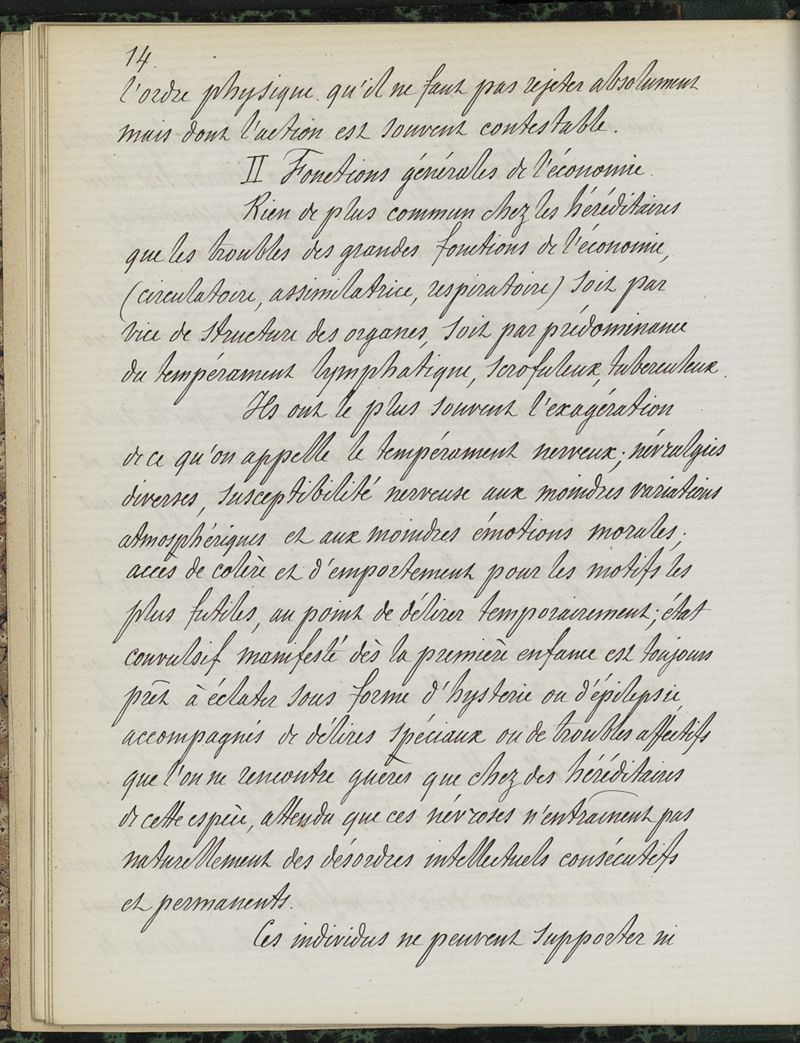 14.
l'ordre physique qu'il ne faut pas rejeter absolument
mais dont l'action est souvent contestable.
II Fonctions générales de l'économie.
Rien de plus commun chez les héréditaires
que les troubles des grandes fonctions de l'économie,
(circulatoire, assimilatrice, respiratoire) soit par
vice de structure des organes, soit par prédominance
du tempérament lymphatique, scrofuleux, tuberculeux.
Ils ont le plus souvent l'exagération
de ce qu'on appelle le tempérament nerveux; névralgies
diverses, susceptibilité nerveuse aux moindres variations
atmosphériques et aux moindres émotions morales;
accès de colère et d'emportement pour les motifs les
plus futiles, au point de délirer temporairement; état
convulsif manifesté dès la première enfance est toujours
prêt à éclater sous forme d'hysterie ou d'épilepsie
accompagnés de délires spéciaux ou de troubles affectifs
que l'on ne rencontre guères que chez des héréditaires
de cette espèce, attendu que ces névroses n'entraînent pas
naturellement des désordres intellectuels consécutifs
et permanents.
Ces individus ne peuvent supporter ni